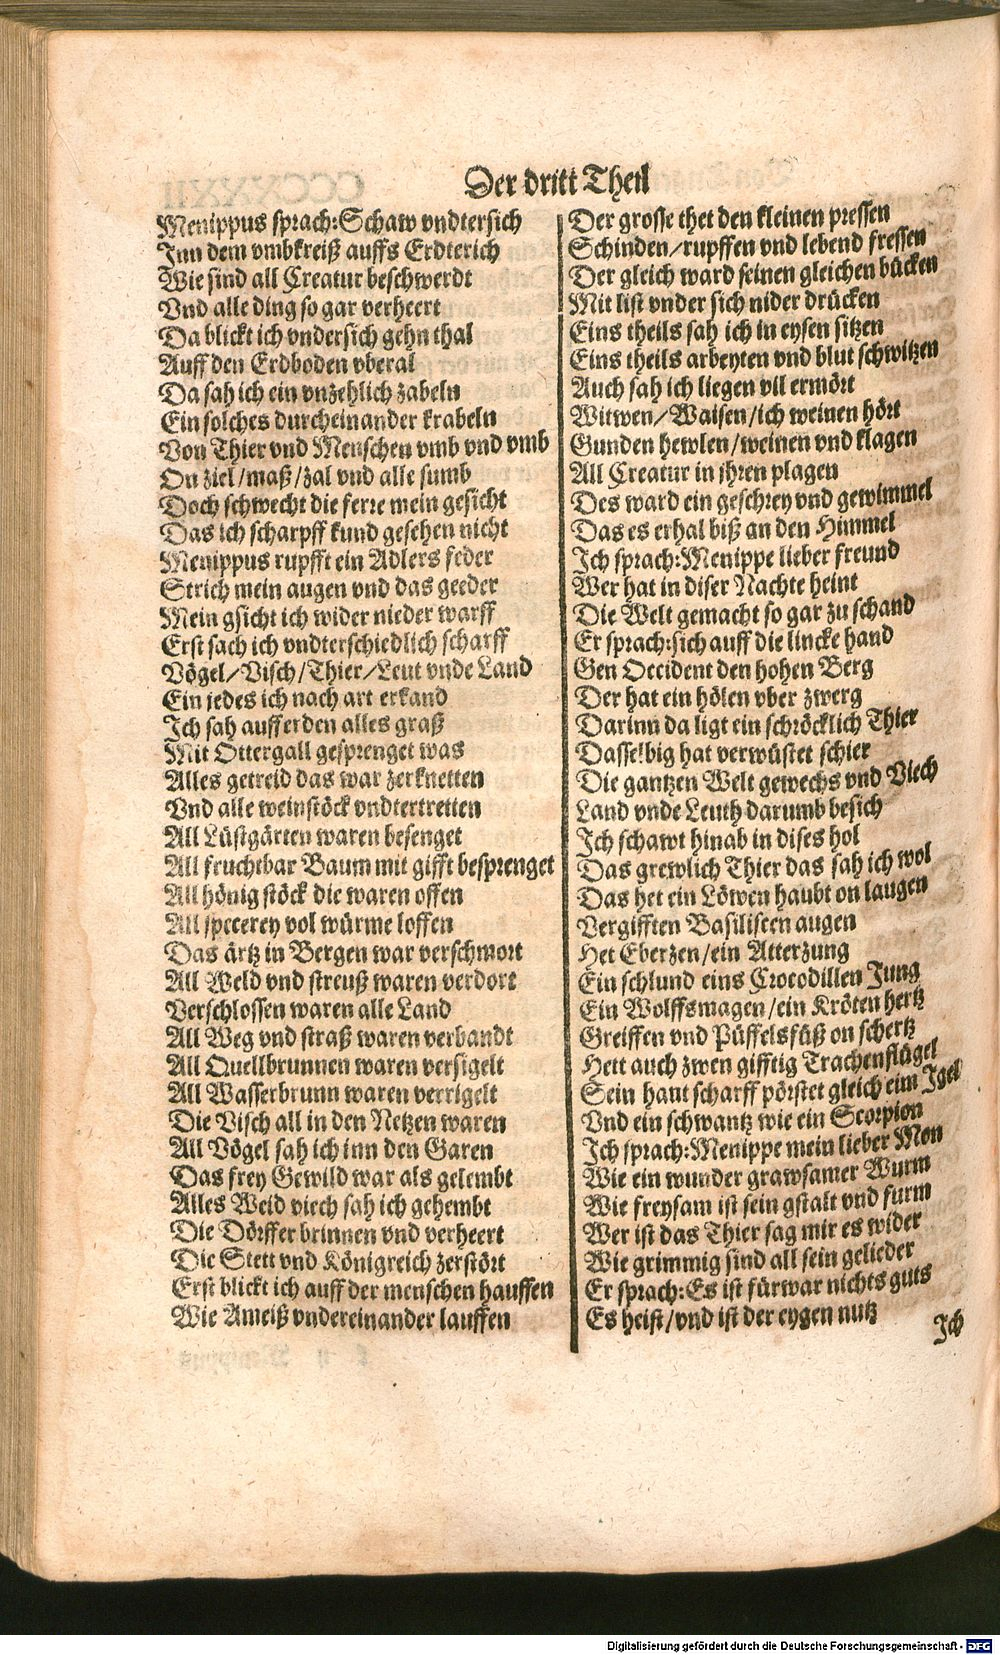 Der dritt Theil
Menippus sprach: Schaw vndtersich
Inn dem vmbkreiß auffs Erdterich
Wie sind all Creatur beschwerdt
Vnd alle ding so gar verheert
Da blickt ich vndersich gehn thal
Auff den Erdboden vberal
Da sah ich ein vnzehlich zabeln
Ein solches durcheinander krabeln
Von Thier vnd Menschen vmb vnd vmb
On ziel/maß/zal vnd alle sumb
Doch schwecht die ferre mein gesicht
Das ich scharpff kund gesehen nicht
Menippus rupfft ein Adlers feder
Strich mein augen vnd das geeder
Mein gsicht ich wider nieder warff
Erst sach ich vndterschiedlich scharff
Vögel/Visch/Thier/Leut vnde Land
Ein jedes ich nach art erkand
Ich sah aufferden alles graß
Mit Ottergall gesprenget was
Alles getreid das war zerknetten
Vnd alle weinstöck vndtertretten
All Lüstgärten waren besenget
All fruchtbar Baum mit gifft besprenget
All hönig stöck die waren offen
All specerey vol würme loffen
Das ärtz in Bergen war verschmort
All Weld vnd streuß waren verdort
Verschlossen waren alle Land
All Weg vnd straß waren verbandt
All Quellbrunnen waren versigelt
All Wasserbrunn waren verrigelt
Die Visch all in den Netzen waren
All Vögel sah ich inn den Garen
Das frey Gewild war als gelembt
Alles Weid viech sah ich gehembt
Die Dörffer brinnen vnd verheert
Die Stett vnd Königreich zerstört
Erst blickt ich auff der menschen hauffen
Wie Ameiß vndereinander lauffen
Der grosse thet den kleinen pressen
Schinden/rupffen vnd lebend fressen
Der gleich ward seinen gleichen bücken
Mit list vnder sich nider drücken
Eins theils sah ich in eysen sitzen
Eins theils arbeyten vnd blut schwitzen
Auch sah ich liegen vil ermört
Witwen/Waisen/ich weinen hört
Gunden hewlen/weinen vnd klagen
All Creatur in ihren plagen
Des ward ein geschrey vnd gewimmel
Das es erhal biß an den Himmel
Ich sprach: Menippe lieber freund
Wer hat in diser Nachte heint
Die Welt gemacht so gar zu schand
Er sprach: sich auff die lincke hand
Gen Occident den hohen Berg
Der hat ein hölen vber zwerg
Darinn da ligt ein schröcklich Thier
Dasselbig hat verwüstet schier
Die gantzen Welt gewechs vnd Viech
Land vnde Leuth darumb besich
Ich schawt hinab in dises hol
Das grewlich Thier das sah ich wol
Das het ein Löwen haubt on laugen
Vergifften Basiliscen augen
Het Eberzen/ein Atterzung
Ein schlund eins Crocodillen Jung
Ein Wolffsmagen/ein Kröten hertz
Greiffen vnd Püffelsfüß on schertz
Hett auch zwen gifftig Trachenflügel
Sein haut scharff pörstet gleich eim Igel
Vnd ein schwantz wie ein Scorpion
Ich sprach: Menippe mein lieber Mon
Wie ein wunder grawsamer Wurm
Wie freysam ist sein gstalt vnd furm
Wer ist das Thier sag mir es wider
Wie grimmig sind all sein gelieder
Er sprach: Es ist fürwar nichts guts
Es heist/vnd ist der eygen nutz
Ich
Digitalisierung gefördert durch die Deutsche Forschungsgemeinschaft - DFG